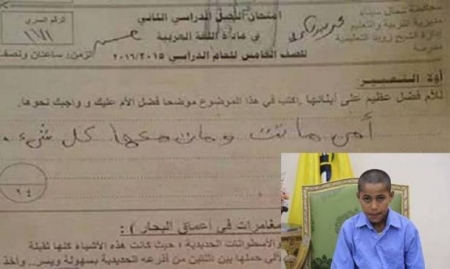 محافظة شمال سيناء
مديرية التربية والتعليم
إدارة الشيخ زويد التعليمية
مدرسة
امتحان الفصل الدراسي الثاني
في مادة اللغة العربية
للصف الخامس للعام الدراسي ٢٠١٦/٢٠١٥
الرقم السري
الزمن: ساعتان ونصف
أولا التعبير
للأم فضل عظيم على أبنائها. اكتب في هذا الموضوع موضحا فضل الأم عليك و واجبك نحوها.
أمى ماتت ومات معها كل شىء.
مغامرات في أعماق البحار ) :
والأسطوانات الحديدية ؛ حيث كانت هذه الأشياء كلها ثقيلة
حملها بين اثنتين من أذرعه الحديدية بسهولة ويسر.. وأخذ